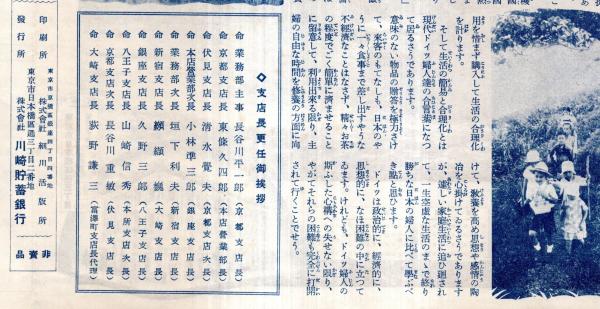 用を惜まず購入して生活の合理化
を計ります。
そして生活の簡易と合理化とは
現代ドイツ婦人達の合言葉になつ
て居るさうであります。
意味のない物品の贈答を極力さけ
て、來客のもてなしも、日本のや
うに一々食事まで差し出すやうな
不經濟なことはなさず、精々お茶
の程度でごく簡單に濟ませること
に留意して、利用出來る限り、主
婦の自由な時間を修養の方面に向
けて、敎養を高め思想や感情の陶
冶を心掛けてゐるさうであります
が、煩しい家庭生活に追ひ廻され
て、一生空虛な生活のまゝで終り
勝ちな日本の婦人に比べて學ぶべ
き點と思ひます。
ドイツは政治的に、經濟的に、
思想的に、なほ困難の中に立つて
ゐます。けれども、ドイツ婦人の
斯ふした心構への失せない限り、
やがてそれらの困難も完全に打開
されて行くことでせう。
◇支店長更任御挨拶
命 業務部主事 長谷川平一郎(京都支店長)
命 京都支店長 東條久四郎(本店營業部長)
命 伏見支店長 清水覺夫(京都支店次長)
命 本店營業部次長 小林準三郎(銀座支店長)
命 業務部次長 垣下利夫(新宿支店長)
命 新宿支店長 纐纈巍(大崎支店長)
命 銀座支店長 矢野三郎(八王子支店長)
命 八王子支店長 山崎信秀(本所支店次長)
命 京都支店次長 長谷川重敏(伏見支店長)
命 大崎支店長 荻野謙三(富澤町支店長代理)
印刷所
株式會社 細川活版所
發行所
東京市日本橋區通三丁目二番地
株式會社 川崎貯蓄銀行
非賣品